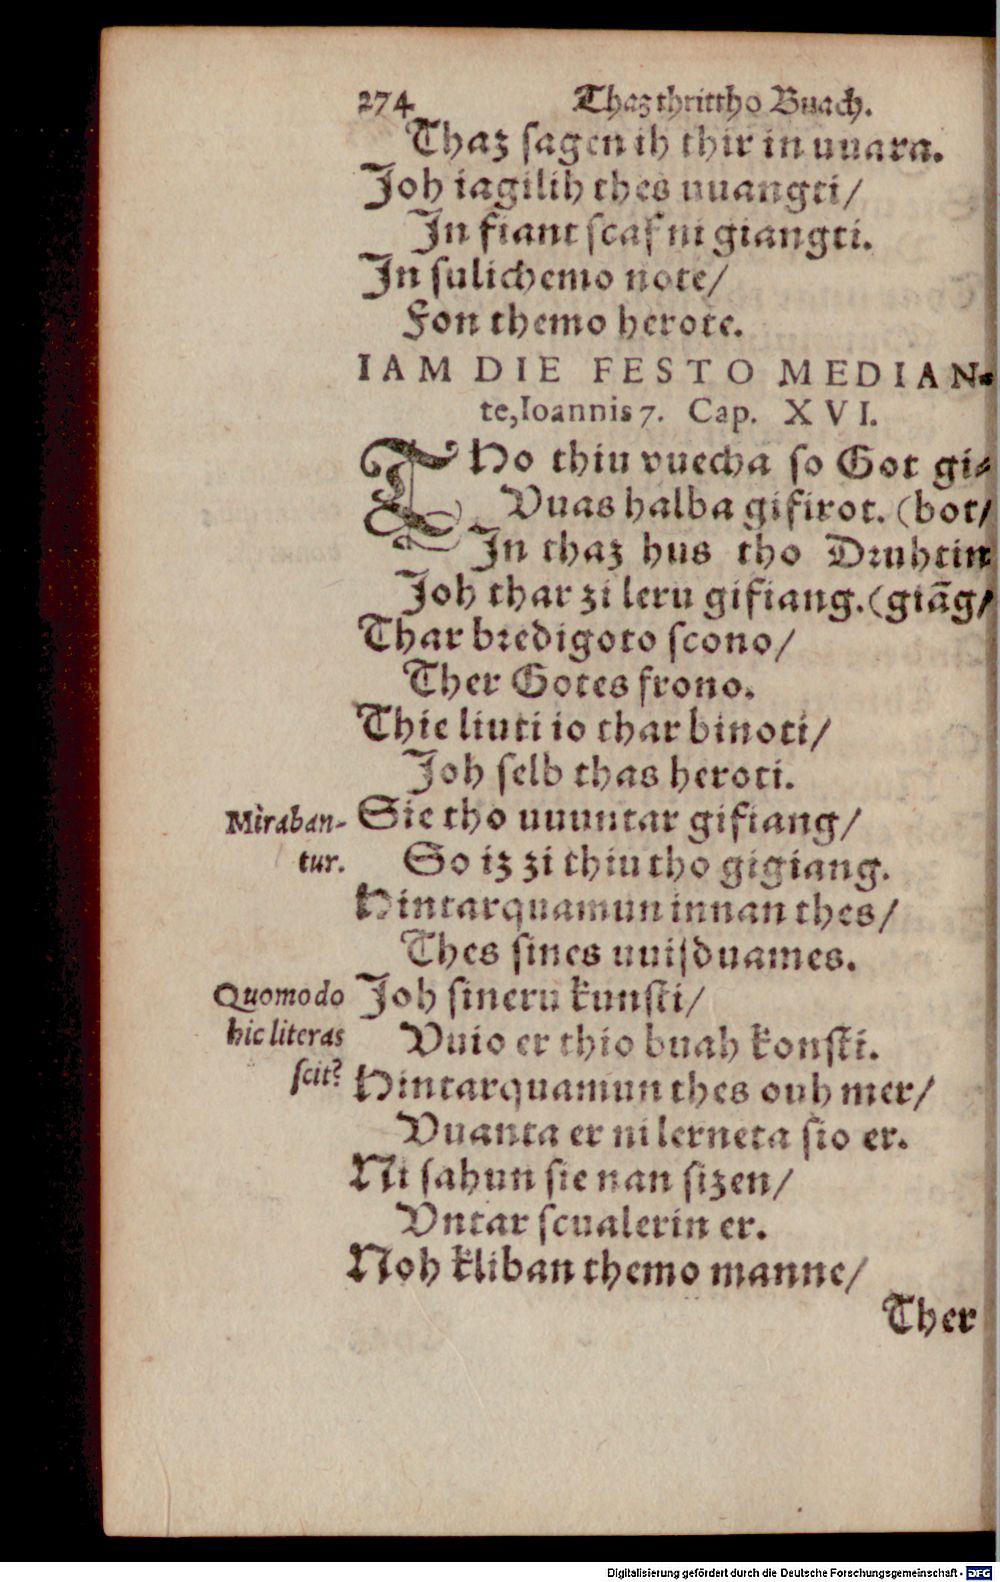 274 Thaz thrittho Buach.
Thaz sagen ih thir in uuara.
Joh iagilih thes uuangti/
In fiant scaf ni giangti.
In sulichemo note/
Fon themo herote.
IAM DIE FESTO MEDIAN-
te, Ioannis 7. Cap. XVI.
THo thiu vuecha so Got gi-
Vuas halba gifirot. (bot/
In thaz hus tho Druhtin
Joh thar zi leru gifiang. (giãg/
Thar bredigoto scono/
Ther Gotes frono.
Thie liuti io thar binoti/
Joh selb thas heroti.
Miraban- Sie tho uuuntar gifiang/
tur. So iz zi thiu tho gigiang.
Hintarquamun innan thes/
Thes sines uuisduames.
Quomodo Joh sineru kunsti/
hic literas Vuio er thio buah konsti.
scit? Hintarquamun thes ouh mer/
Vuanta er ni lerneta sio er.
Ni sahun sie nan sizen/
Vntar scualerin er.
Noh kliban themo manne/
Ther
Digitalisierung gefördert durch die Deutsche Forschungsgemeinschaft - DFG